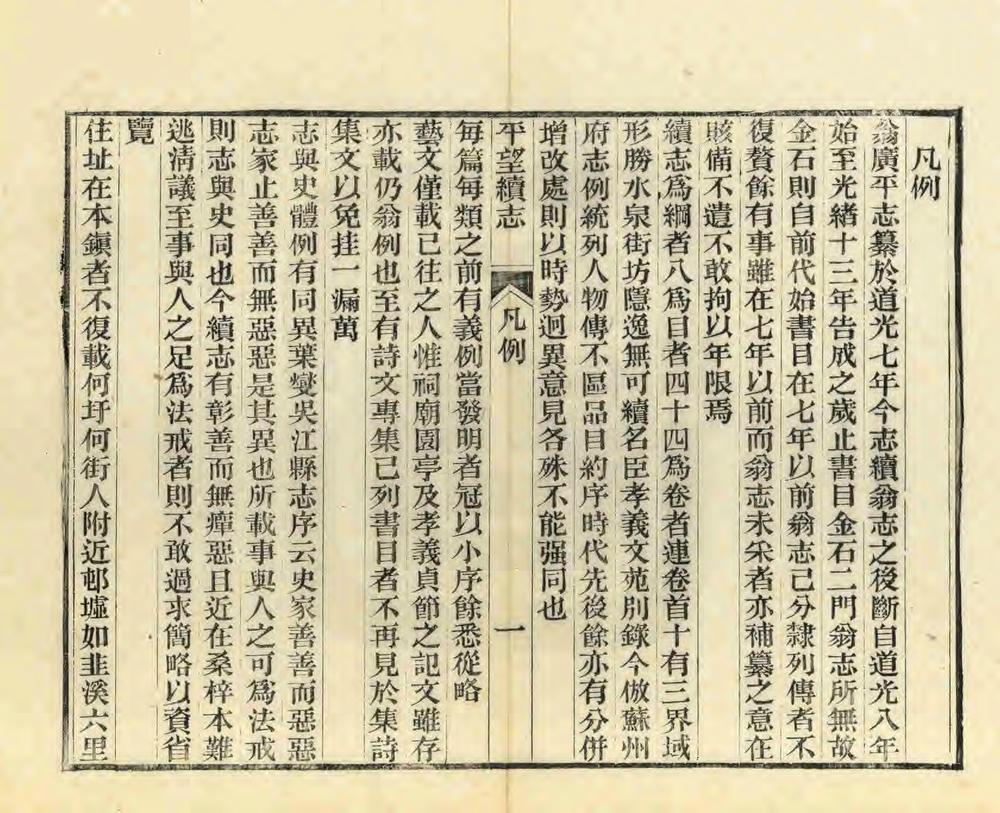 凡例
翁廣平志纂於道光七年今志續翁志之後斷自道光八年
始至光緒十三年告成之歲止書目金石二門翁志所無故
金石則自前代始書目在七年以前翁志已分隸列傳者不
復贅餘有事雖在七年以前而翁志未采者亦補纂之意在
賅備不遺不敢拘以年限焉
續志爲綱者八爲目者四十四爲卷者連卷首十有三界域
形勝水泉街坊隱逸無可續名臣孝義文苑別錄今倣蘇州
府志例統列人物傳不區品目約序時代先後餘亦有分併
增改處則以時勢迥異意見各殊不能强同也
平望續志 凡例 一
每篇每類之前有義例當發明者冠以小序餘悉從略
藝文僅載已往之人惟祠廟園亭及孝義貞節之記文雖存
亦載仍翁例也至有詩文專集已列書目者不再見於集詩
集文以免挂一漏萬
志與史體例有同異葉燮吳江縣志序云史家善善而惡惡
志家止善善而無惡惡是其異也所載事與人之可爲法戒
則志與史同也今續志有彰善而無癉惡且近在桑梓本難
逃淸議至事與人之足爲法戒者則不敢過求簡略以資省
覽
住址在本鎭者不復載何圩何街人附近邨墟如韭溪六里